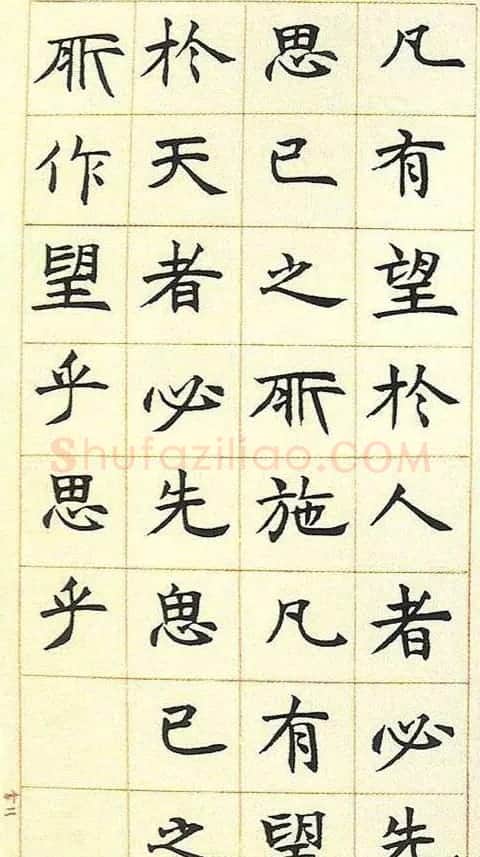 凡有望扵人者必先
思己之所施凡有望
扵天者必先思己之
所作望乎思乎
十二
Shufaziliao.COM